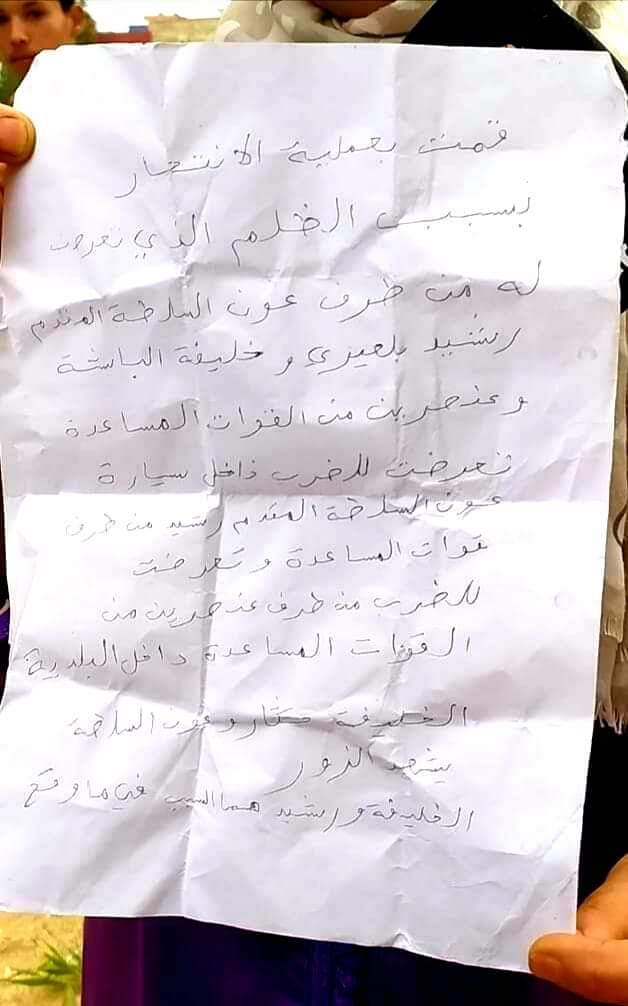 قمت بعملية الانتحار
بسبب الظلم الذي تعرضت
له من طرف عون السلطة المقدم
رشيد بلعيزي و خليفة الباشة
وعنصرين من القوات المساعدة
تعرضت للضرب داخل سيارة
عون السلطة المقدم رشيد من طرف
قوات المساعدة وتعرضت
للضرب من طرف عنصرين من
القوات المساعدة داخل البلدية
الخليفة وعون السلطة
يشهد الزور
الخليفة ورشيد هما السبب في ما وقع